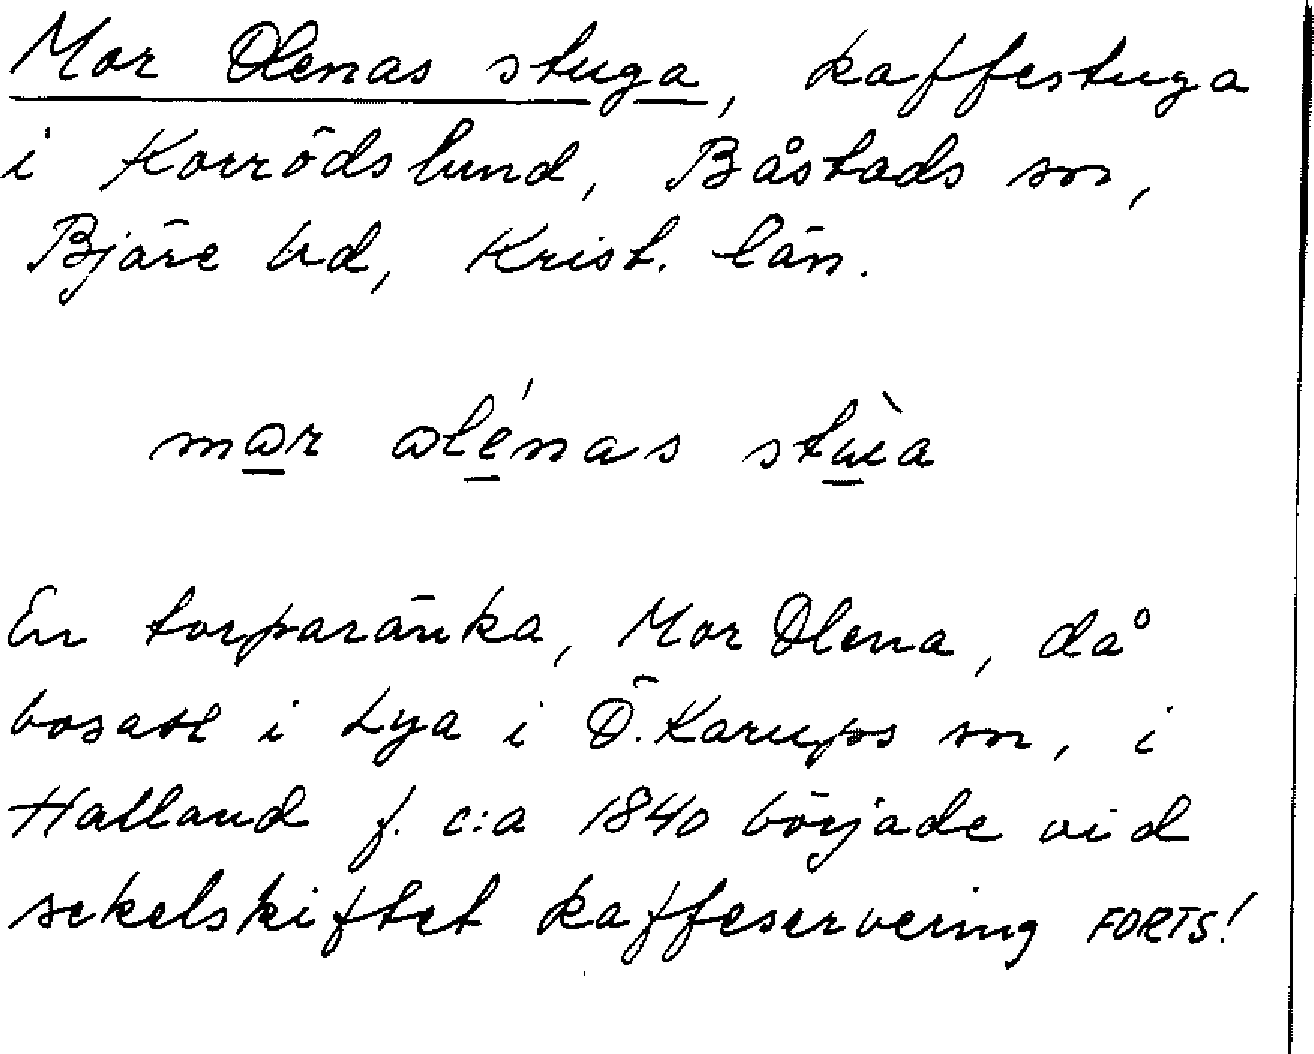 Mor Olenas stuga, kaffestuga
i Korrödslund, Båstads sn,
Bjäre hd, Krist. län.
mɑr ɑlénas stùia
En torparänka, Mor Olena, då
bosatt i Lya i Ö. Karups sn, i
Halland f. c:a 1840 började vid
sekelskiftet kaffeservering FORTS!